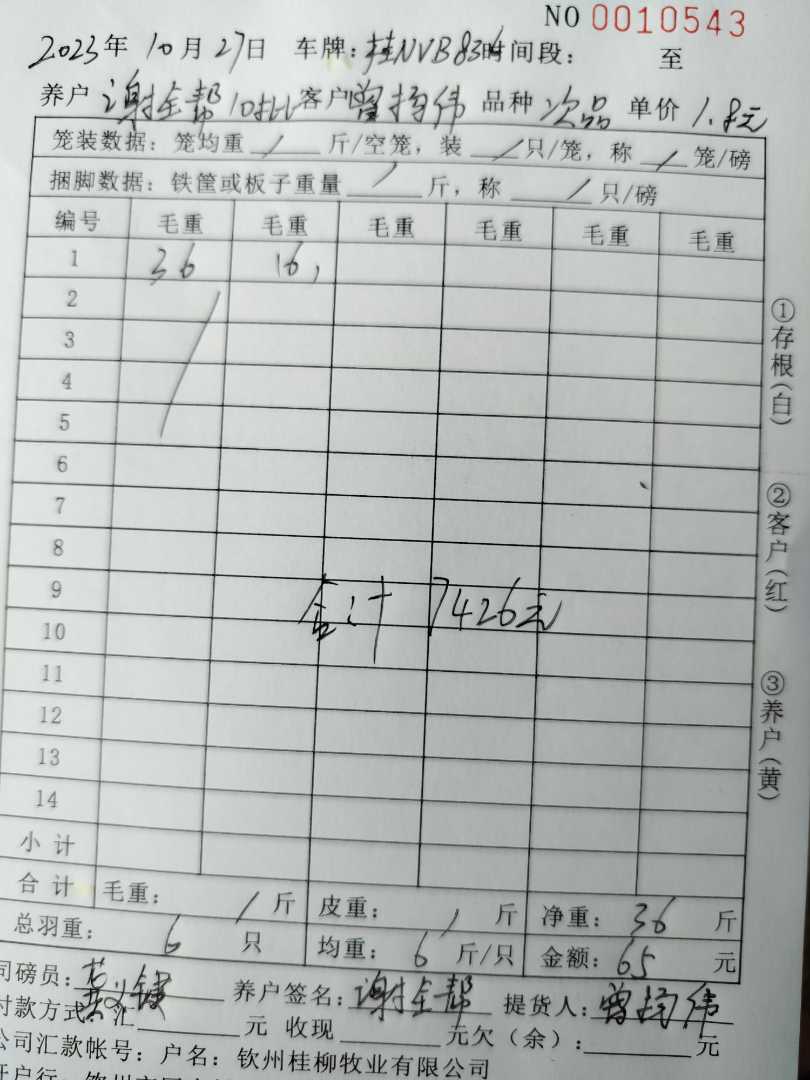 NO 0010543
2023年 10月27日 车牌:桂NVB83 时间段: 至
养户 谢全帮 10批 客户 曾扬伟 品种 次品 单价 1.8元
笼装数据: 笼均重 / 斤/空笼, 装 / 只/笼, 称 / 笼/磅
捆脚数据: 铁筐或板子重量 / 斤, 称 / 只/磅
编号 毛重 毛重 毛重 毛重 毛重 毛重
1 36 16,
2
3
4
5
6
7
8
9
合计 7426元
10
11
12
13
14
小计
合计 毛重: / 斤 皮重: / 斤 净重: 36 斤
总羽重: 6 只 均重: 6 斤/只 金额: 65 元
司磅员: 养户签名: 谢全帮 提货人: 曾扬伟
付款方式: 汇 元 收现 元欠(余): 元
公司汇款帐号: 户名: 钦州桂柳牧业有限公司
开户行:
①存根(白)
②客户(红)
③养户(黄)